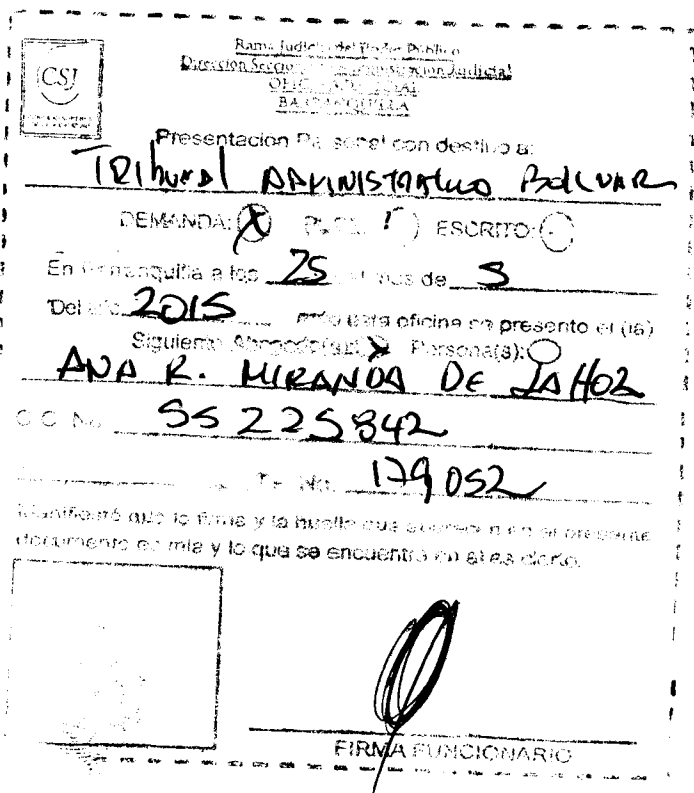 CSJ
Rama Judicial del Poder Público
Dirección Seccional Judicial
OFICINA JUDICIAL
BARRANQUILLA
Presentación Personal con destino a:
TRIbunal ADMINISTRATIVO BOLIVAR
DEMANDA: X ESCRITO:
En Barranquilla a los 25 mes de 5
Del año 2015 ante esta oficina se presento el (la)
Siguiente Abogado(a): X Persona(s):
ANA R. MIRANDA DE LA HOZ
C.C. No. 55 225 842
T.P. No. 179 052
Manifiestó que la firma y la huella que aparecen en el presente
documento es mia y lo que se encuentra en el es cierto.
FIRMA FUNCIONARIO